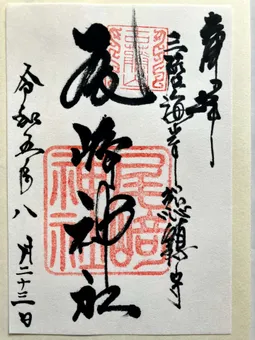 奉拝
三陸海岸 総鎮守
尾崎神社
尾崎神社
令和五年八月二十三日